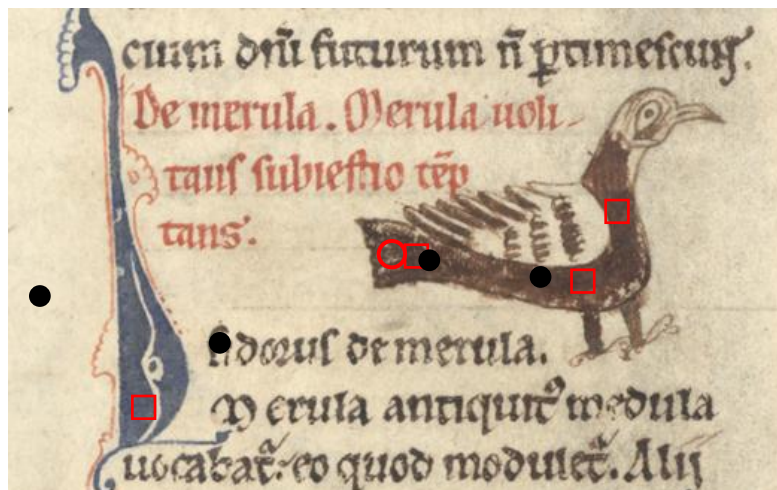 cium dñi futurum ñ ꝑtimescunt.
De merula. Merula uoli-
tans subiectio tēp
tans.
sidorus de merula.
Merula antiquit᷒ medula
uocabat᷑. eo quod modulet᷑. Alij